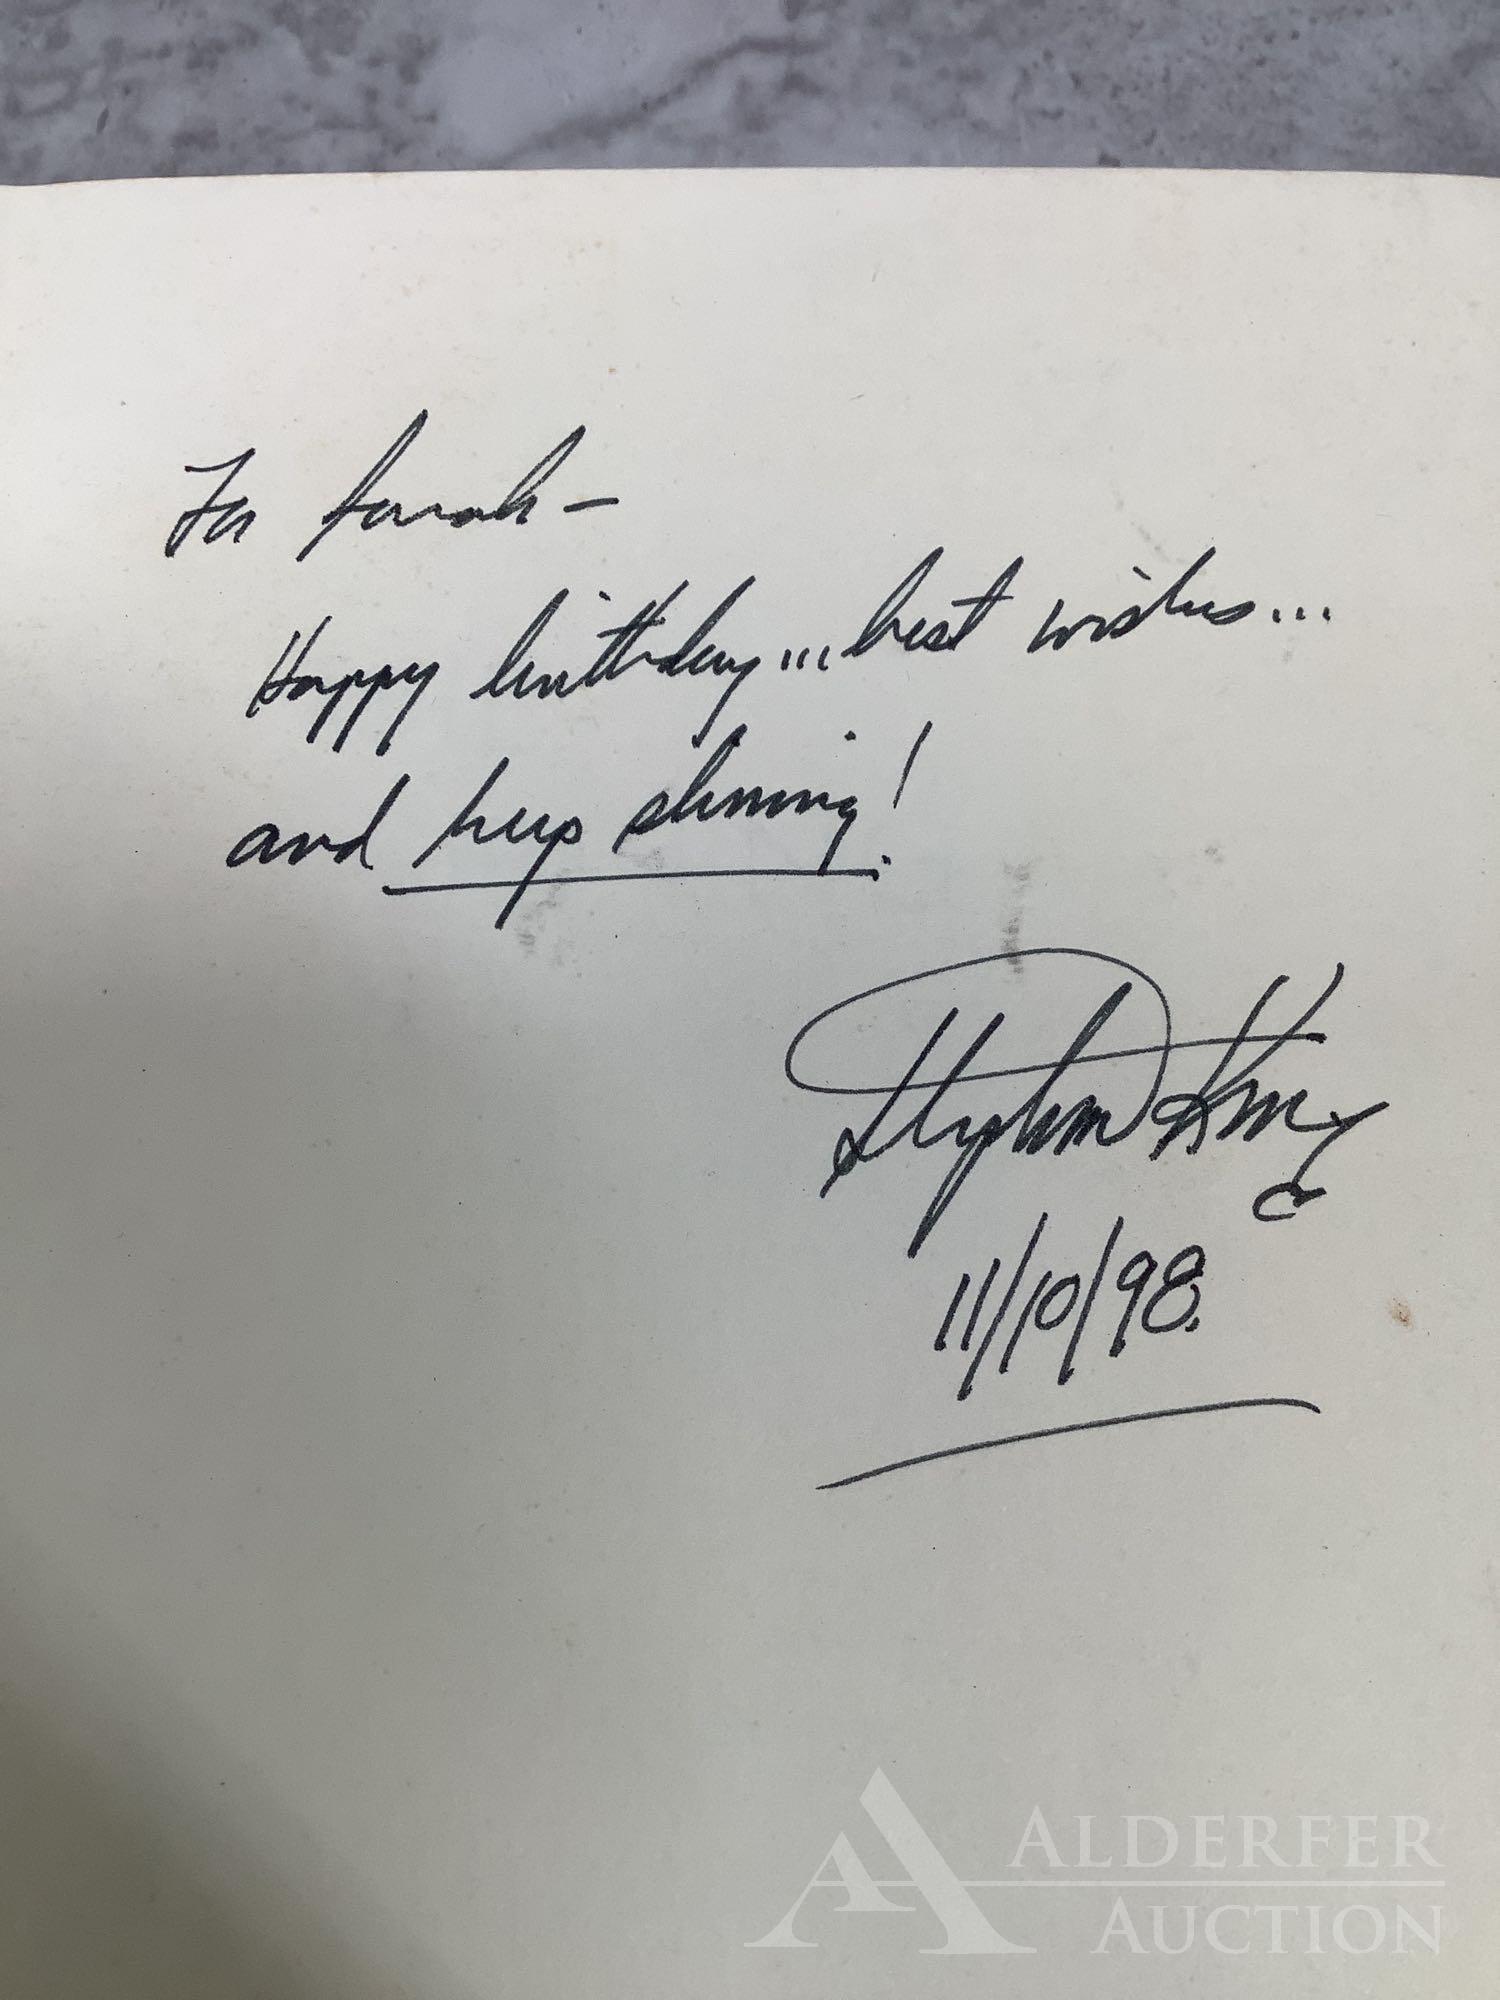 For Sarah—
Happy birthday...best wishes...
and keep shining!
Stephen King
11/10/98.
ALDERFER
AUCTION